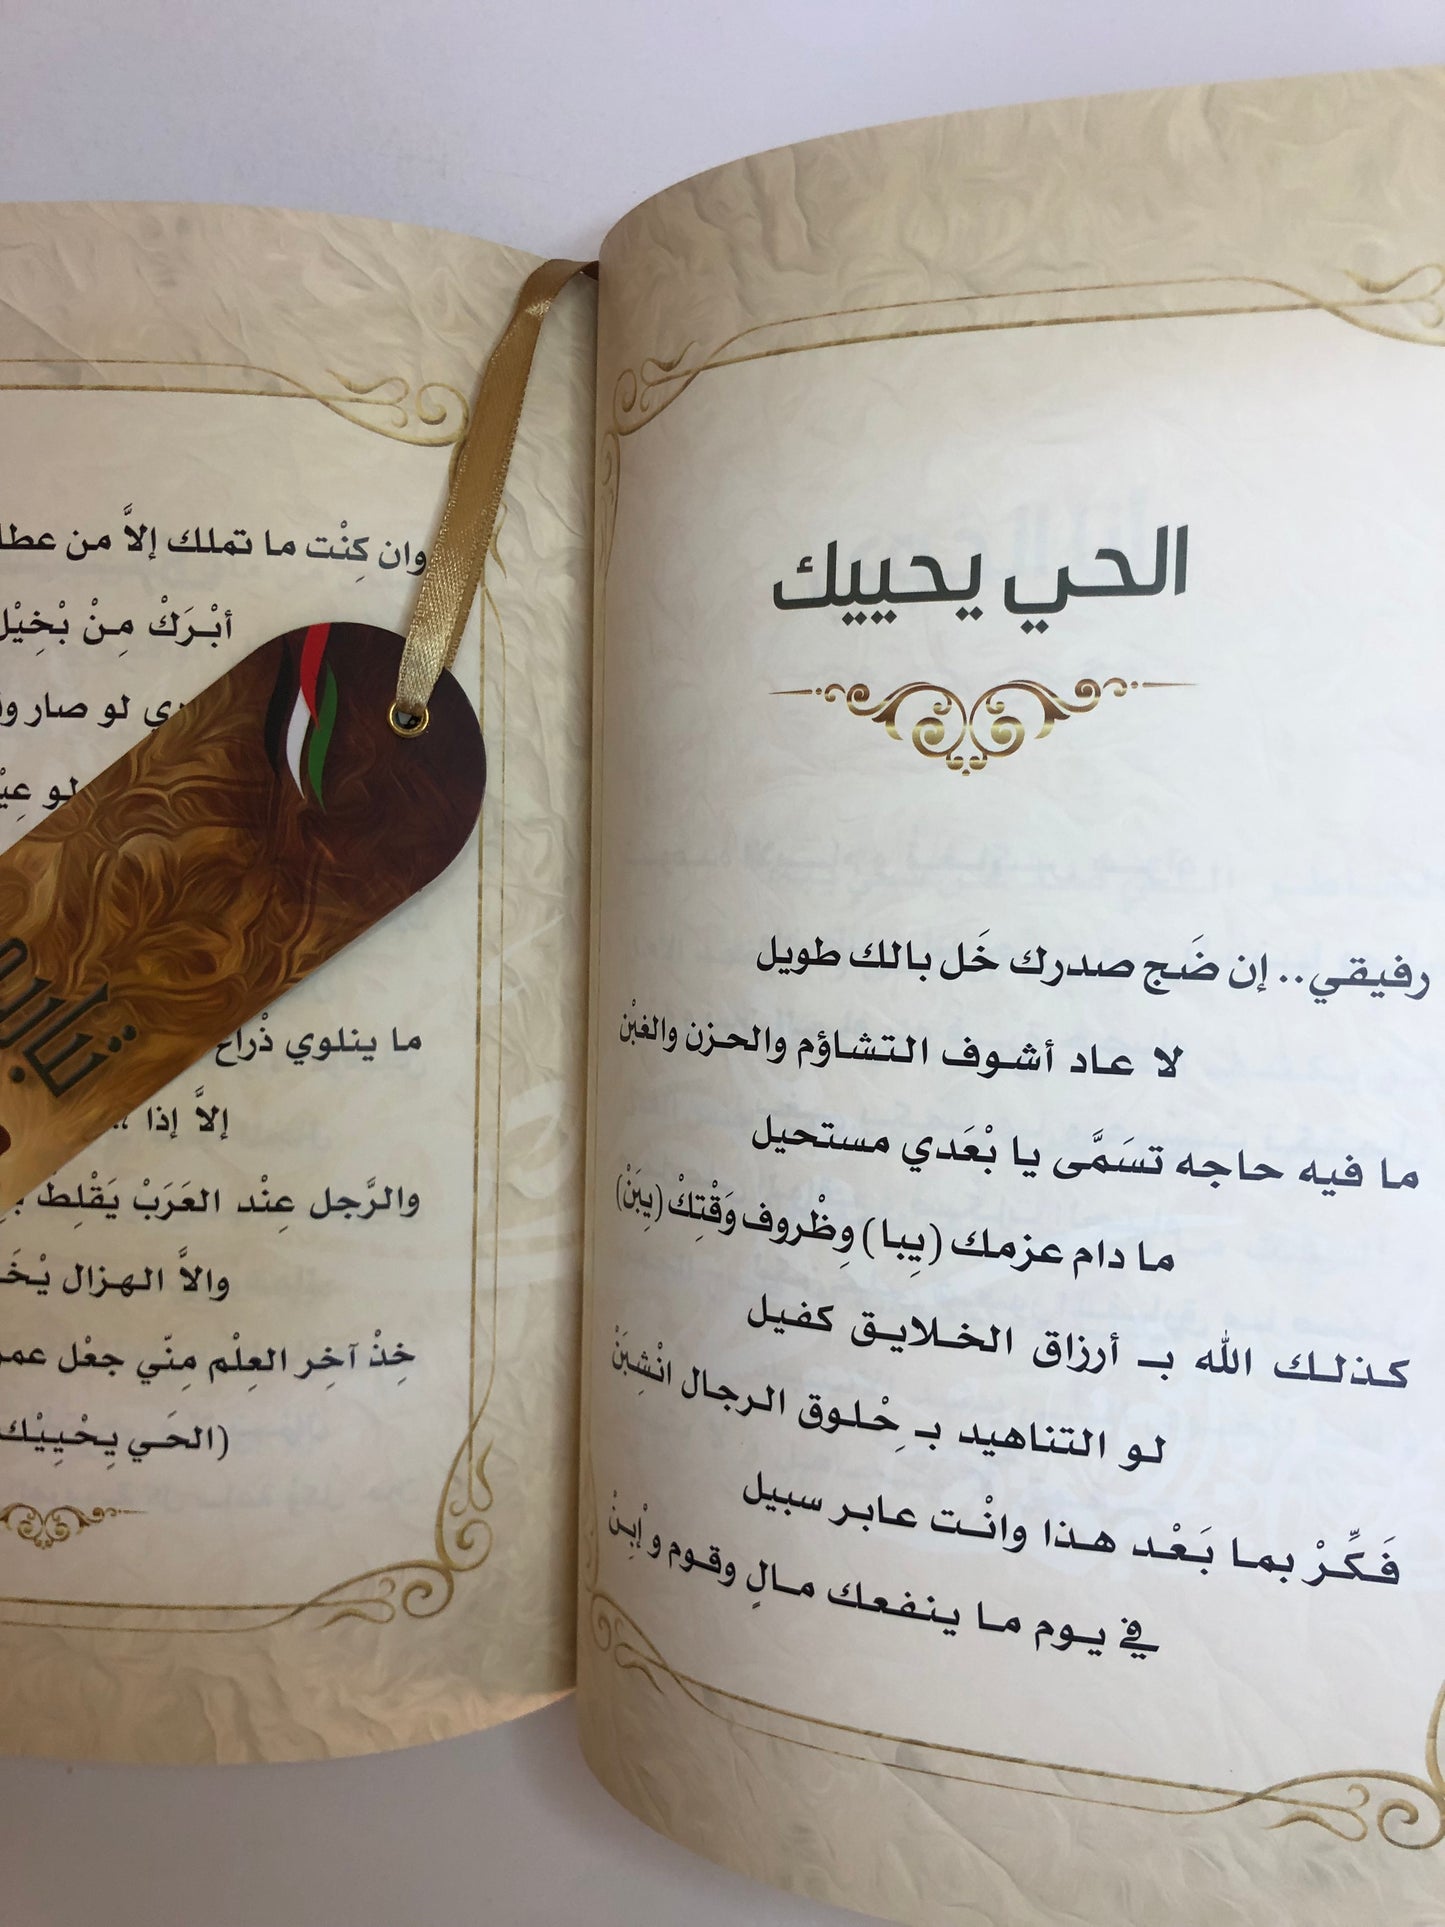 الحي يحييك
رفيقي.. إن ضَج صدرك خَل بالك طويل
لا عاد أشوف التشاؤم والحزن والغبْن
ما فيه حاجه تسَمَّى يا بْعَدي مستحيل
ما دام عزمك (يِبا) وِظْروف وَقْتِكْ (يِبَنْ)
كذلك الله بـ أرزاق الخلايق كفيل
لو التناهيد بـ حِْلوق الرجال انْشِبَنْ
فَكِّرْ بما بَعْد هذا وانْت عابر سبيل
في يوم ما ينفعك مالٍ وقوم و اْبِنْ
وان كِنْت ما تملك إلاَّ من عطا
أبْرَكْ مِنْ بْخِيْل
لو صار
لو
ما ينلوي ذْراع
إلاَّ إذا
والرَّجل عِنْد العَرَبْ يَقْلِطْ
والاَّ الهزال يْخَ
خِذْ آخِر العِلْم مِنّي جعْل عمر
(الحَي يِحْيِيْك